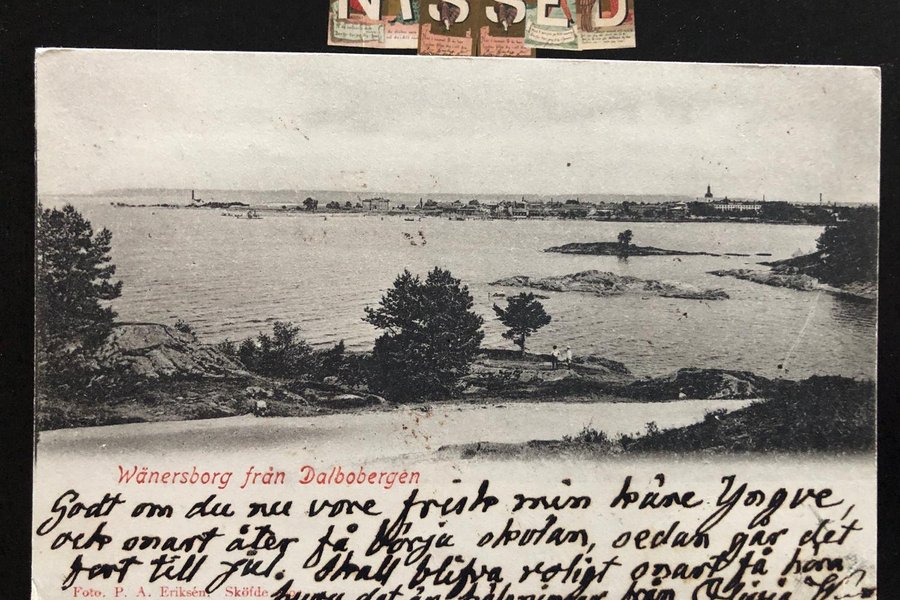 NISSED
Wänersborg från Dalbobergen
Godt om du nu vore frisk min käre Yngve,
och snart åter få börja skolan, sedan går det
fort till jul. Skall blifva roligt snart få höra
Foto. P. A. Eriksén, Sköfde
huru det är
från